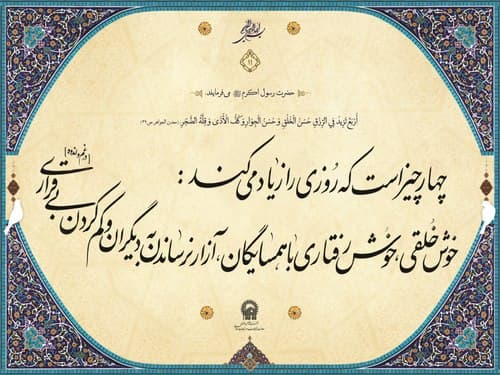 بسم الله الرحمن الرحیم
۱۱
حضرت رسول اکرم ﷺ می‌فرمایند:
أَرْبَعٌ تَزِيدُ فِي الرِّزْقِ حُسْنُ الْخُلْقِ وَ حُسْنُ الْجِوَارِ وَ كَفُّ الْأَذَى وَ قِلَّةُ الضَّجَرِ. (معدن الجواهر ص ۳۹)
چهار چیز است که رُوزی را زیاد می‌کند :
خوش خُلقی، خوش رفتاری با همسایگان، آزار نرساندن به دیگران و کم کردن بی‌قراری
[در غم و اندوه]